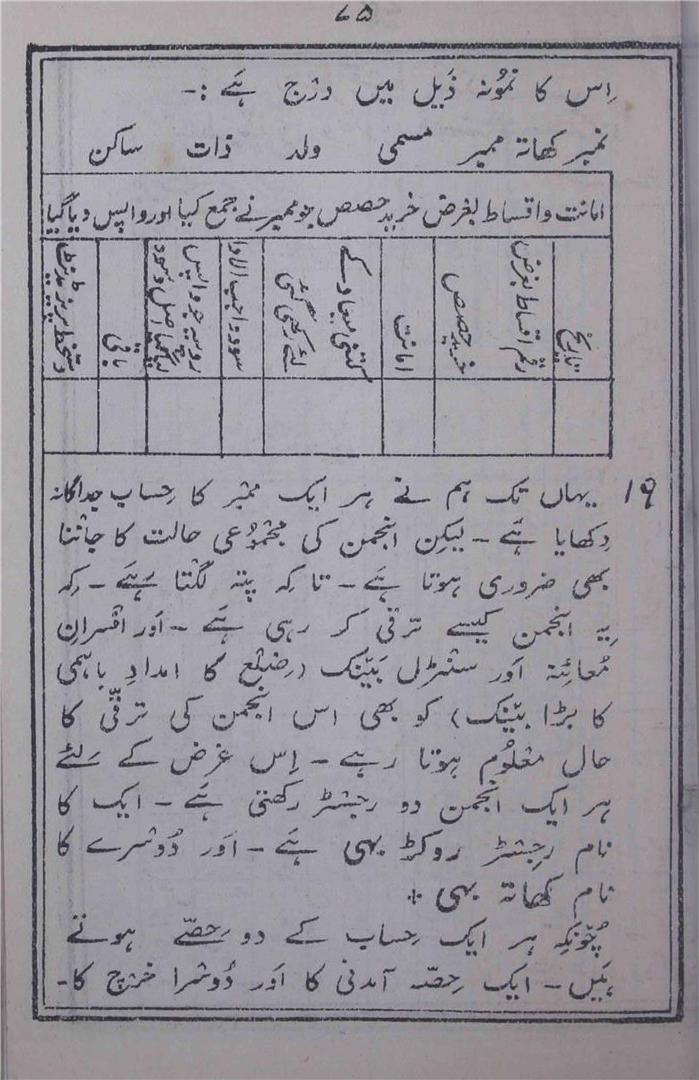 ۷۵
اِس کا نمُونہ ذَیل میں درْج ہَے :-
نمبر کھاتہ ممبر مسمی ولد ذات ساکن
امانت و اقساط بغرض خرید حصص جو ممبر نے جمع کیا اور واپس دیا گیا
تاریخ
رقم اقساط بغرض
خرید حصص
امانت
کتنی میعاد کے
لئے رکھی گئی
سود واجب الادا
روپیہ جو واپس
دیا گیا اصل و سود
باقی
دستخط پریزیڈنٹ
۱۹ یہاں تک ہم نے ہر ایک ممْبر کا حِساب جداگانہ
دِکھایا ہَے - لیکِن انْجمن کی مجْمُوعی حالت کا جاننا
بھی ضروری ہوتا ہَے - تا کہ پتہ لگْتا رَہَے - کِہ
یِہ انْجمن کَیسے ترقّی کر رہی ہَے - اَور افْسرانِ
مُعائِنہ اَور سنْٹرل بَینْک (ضِلع کا امدادِ باہمی
کا بڑا بَینْک) کو بھی اس انْجمن کی ترقّی کا
حال معْلُوم ہوتا رہے - اِس غرض کے لِئے
ہر ایک انْجمن دو رجِسْٹر رکھتی ہَے - ایک کا
نام رجِسْٹر روکڑ بہی ہَے - اَور دُوسْرے کا
نام کھاتہ بہی *
چُونکِہ ہر ایک حِساب کے دو حِصّے ہوتے
ہَیں - ایک حِصّہ آمدنی کا اَور دُوسْرا خرْچ کا -